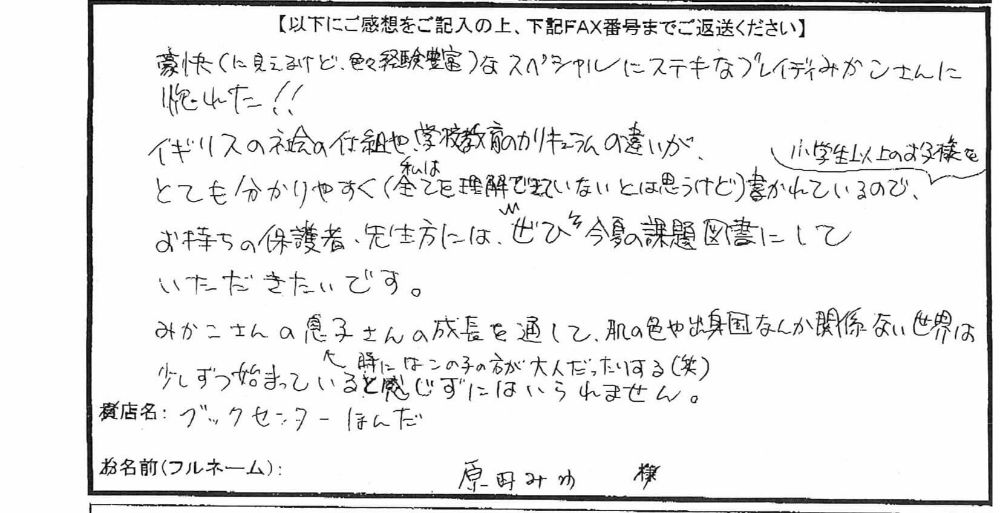 【以下にご感想をご記入の上、下記FAX番号までご返送ください】
豪快(に見えるけど、色々経験豊富)なスペシャルにステキなブレイディみかこさんに
惚れた!!
イギリスの社会の仕組や、学校教育のカリキュラムの違いが、
とても分かりやすく(私は全てを理解できていないとは思うけど)書かれているので、小学生以上のお子様を
お持ちの保護者、先生方には、ぜひぜひ今夏の課題図書にして
いただきたいです。
みかこさんの息子さんの成長を通して、肌の色や出身国なんか関係ない世界は
時にはこの子の方が大人だったりする(笑)
少しずつ始まっていると感じずにはいられません。
貴店名: ブックセンターほんだ
お名前(フルネーム): 原田みゆ 様